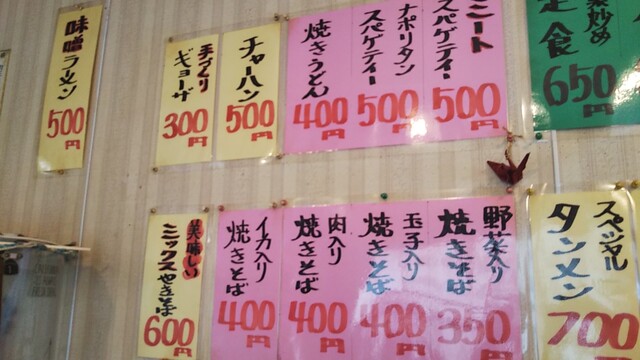 味噌ラーメン
500円
手づくり
ギョーザ
300円
チャーハン
500円
焼きうどん
400円
ナポリタン
スパゲティー
500円
ミート
スパゲティー
500円
菜炒め
定食
650円
美味しい
ミックスやきそば
600円
イカ入り
焼きそば
400円
肉入り
焼きそば
400円
玉子入り
焼きそば
400円
野菜入り
焼きそば
350円
スペシャル
タンメン
700円